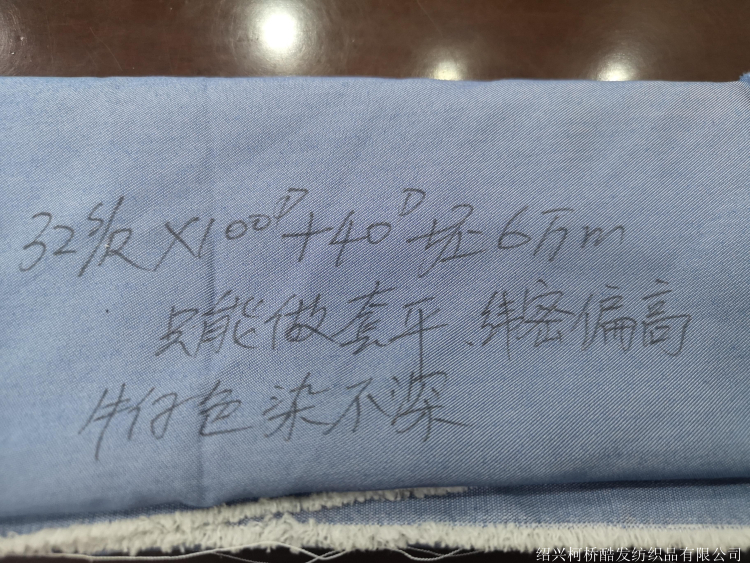 32S/R×100D+40D坯6万m
只能做套平、纬密偏高
牛仔色染不深
绍兴柯桥酷发纺织品有限公司